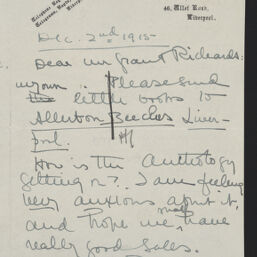 46, Ullet Road,
Liverpool.
Dec. 2nd 1915
Dear Mr Grant Richards:
Please send
little books to
Allerton Beeches Liver-
pool.
How is the Anthology
getting on? I am feeling
very anxious about it,
and hope we shall have
really good sales.